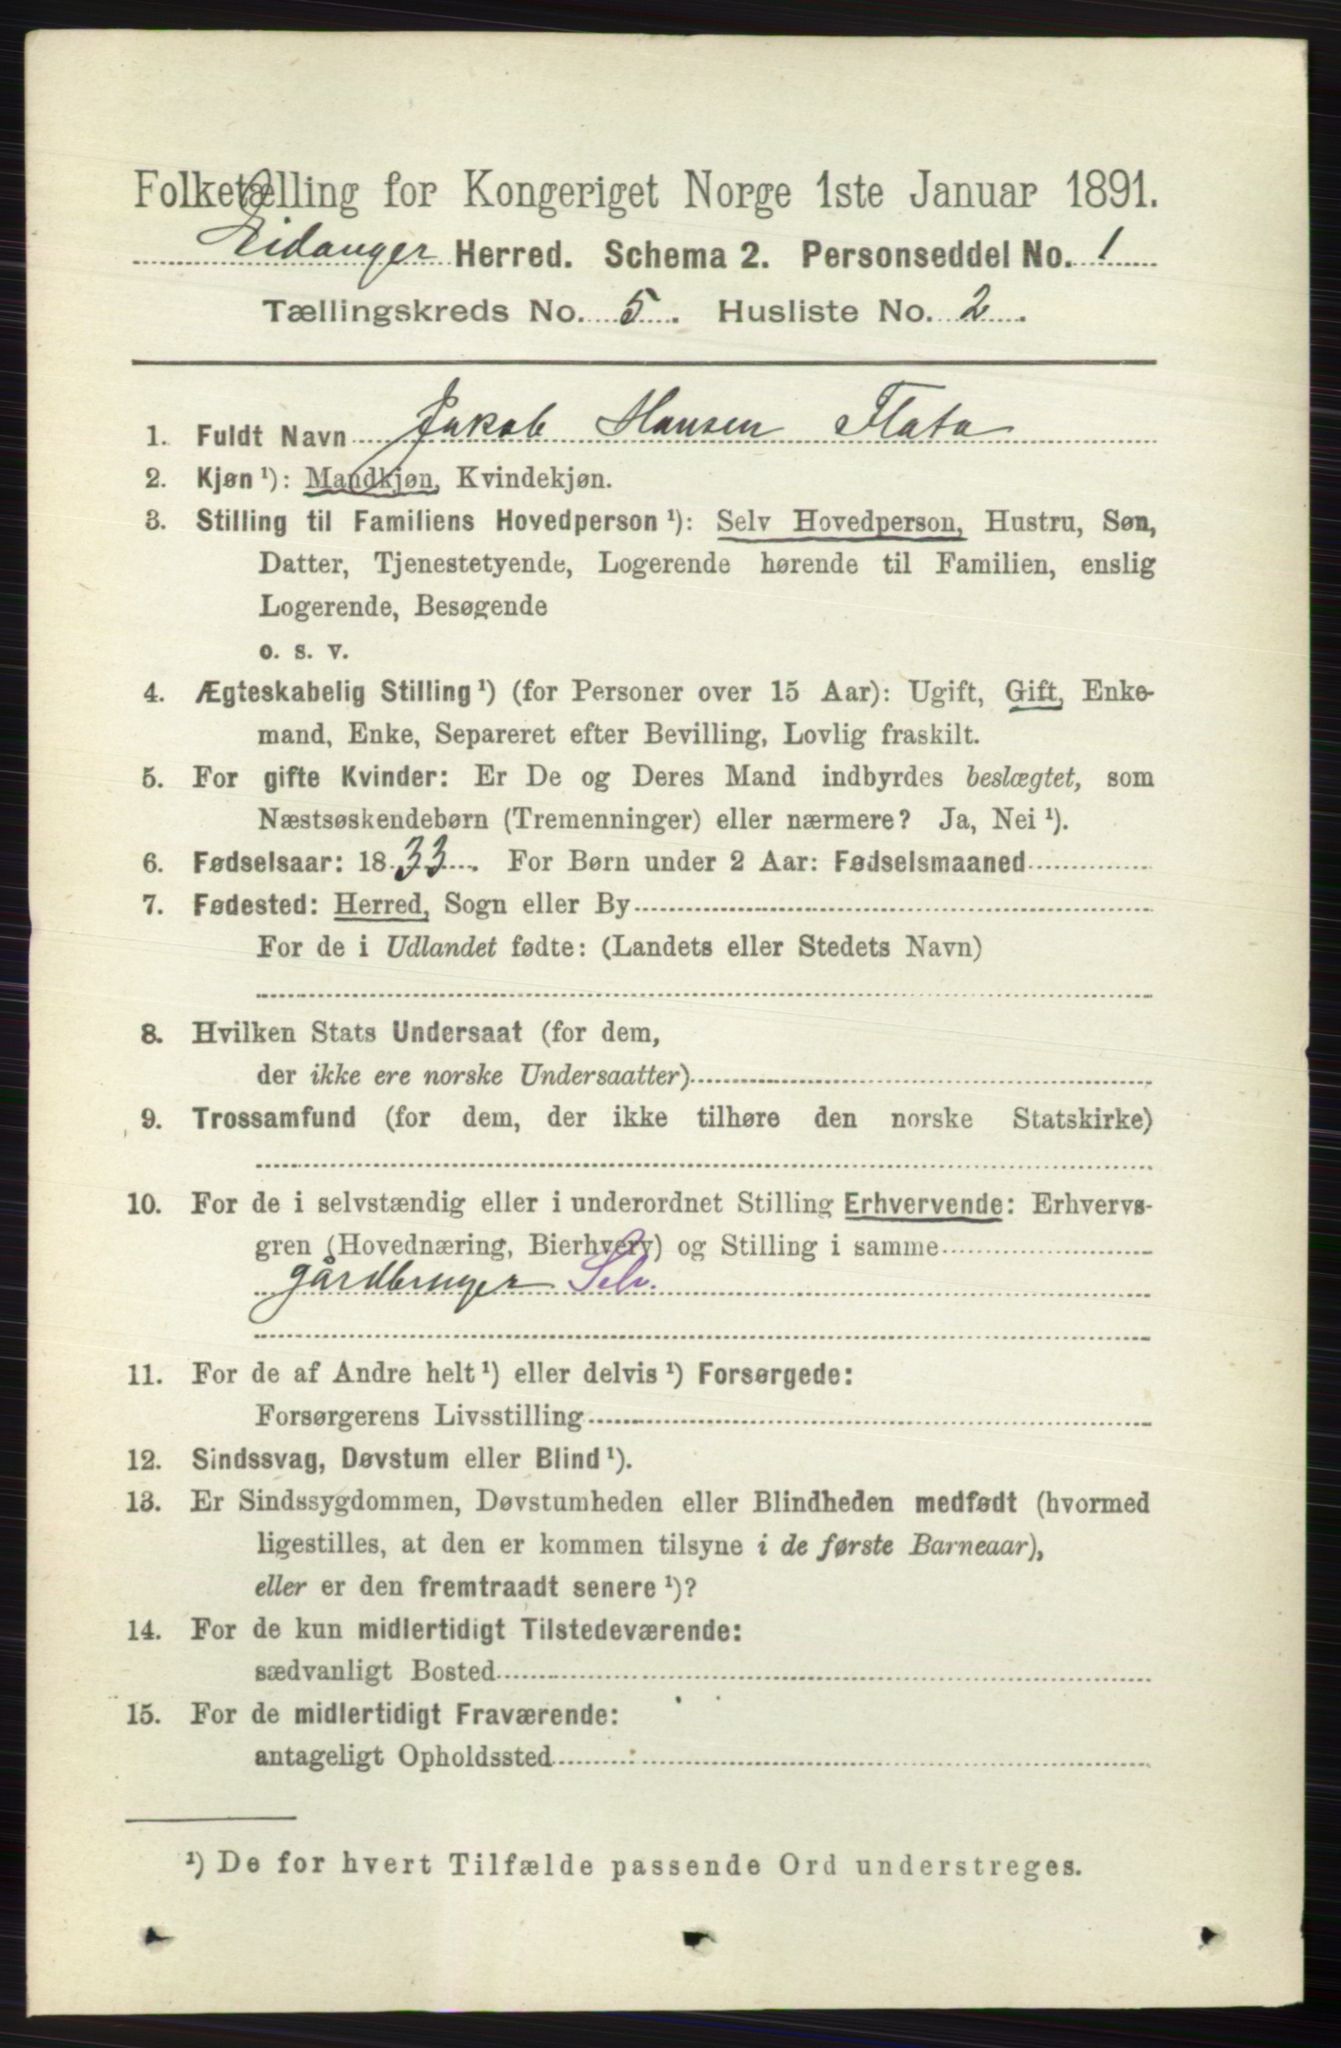 Folketælling for Kongeriget Norge 1ste Januar 1891.
Eidanger Herred. Schema 2. Personseddel No. 1
Tællingskreds No. 5. Husliste No. 2.
1. Fuldt Navn Jakob Hansen Flata
2. Kjøn¹): Mandkjøn, Kvindekjøn.
3. Stilling til Familiens Hovedperson¹): Selv Hovedperson, Hustru, Søn,
Datter, Tjenestetyende, Logerende hørende til Familien, enslig
Logerende, Besøgende
o. s. v.
4. Ægteskabelig Stilling¹) (for Personer over 15 Aar): Ugift, Gift, Enke-
mand, Enke, Separeret efter Bevilling, Lovlig fraskilt.
5. For gifte Kvinder: Er De og Deres Mand indbyrdes beslægtet, som
Næstsøskendebørn (Tremenninger) eller nærmere? Ja, Nei¹).
6. Fødselsaar: 1833. For Børn under 2 Aar: Fødselsmaaned
7. Fødested: Herred, Sogn eller By
For de i Udlandet fødte: (Landets eller Stedets Navn)
8. Hvilken Stats Undersaat (for dem,
der ikke ere norske Undersaatter)
9. Trossamfund (for dem, der ikke tilhøre den norske Statskirke)
10. For de i selvstændig eller i underordnet Stilling Erhvervende: Erhvervs-
gren (Hovednæring, Bierhverv) og Stilling i samme
gårdbruger Selv.
11. For de af Andre helt¹) eller delvis¹) Forsørgede:
Forsørgerens Livsstilling
12. Sindssvag, Døvstum eller Blind¹).
13. Er Sindssygdommen, Døvstumheden eller Blindheden medfødt (hvormed
ligestilles, at den er kommen tilsyne i de første Barneaar),
eller er den fremtraadt senere¹)?
14. For de kun midlertidigt Tilstedeværende:
sædvanligt Bosted
15. For de midlertidigt Fraværende:
antageligt Opholdssted
¹) De for hvert Tilfælde passende Ord understreges.